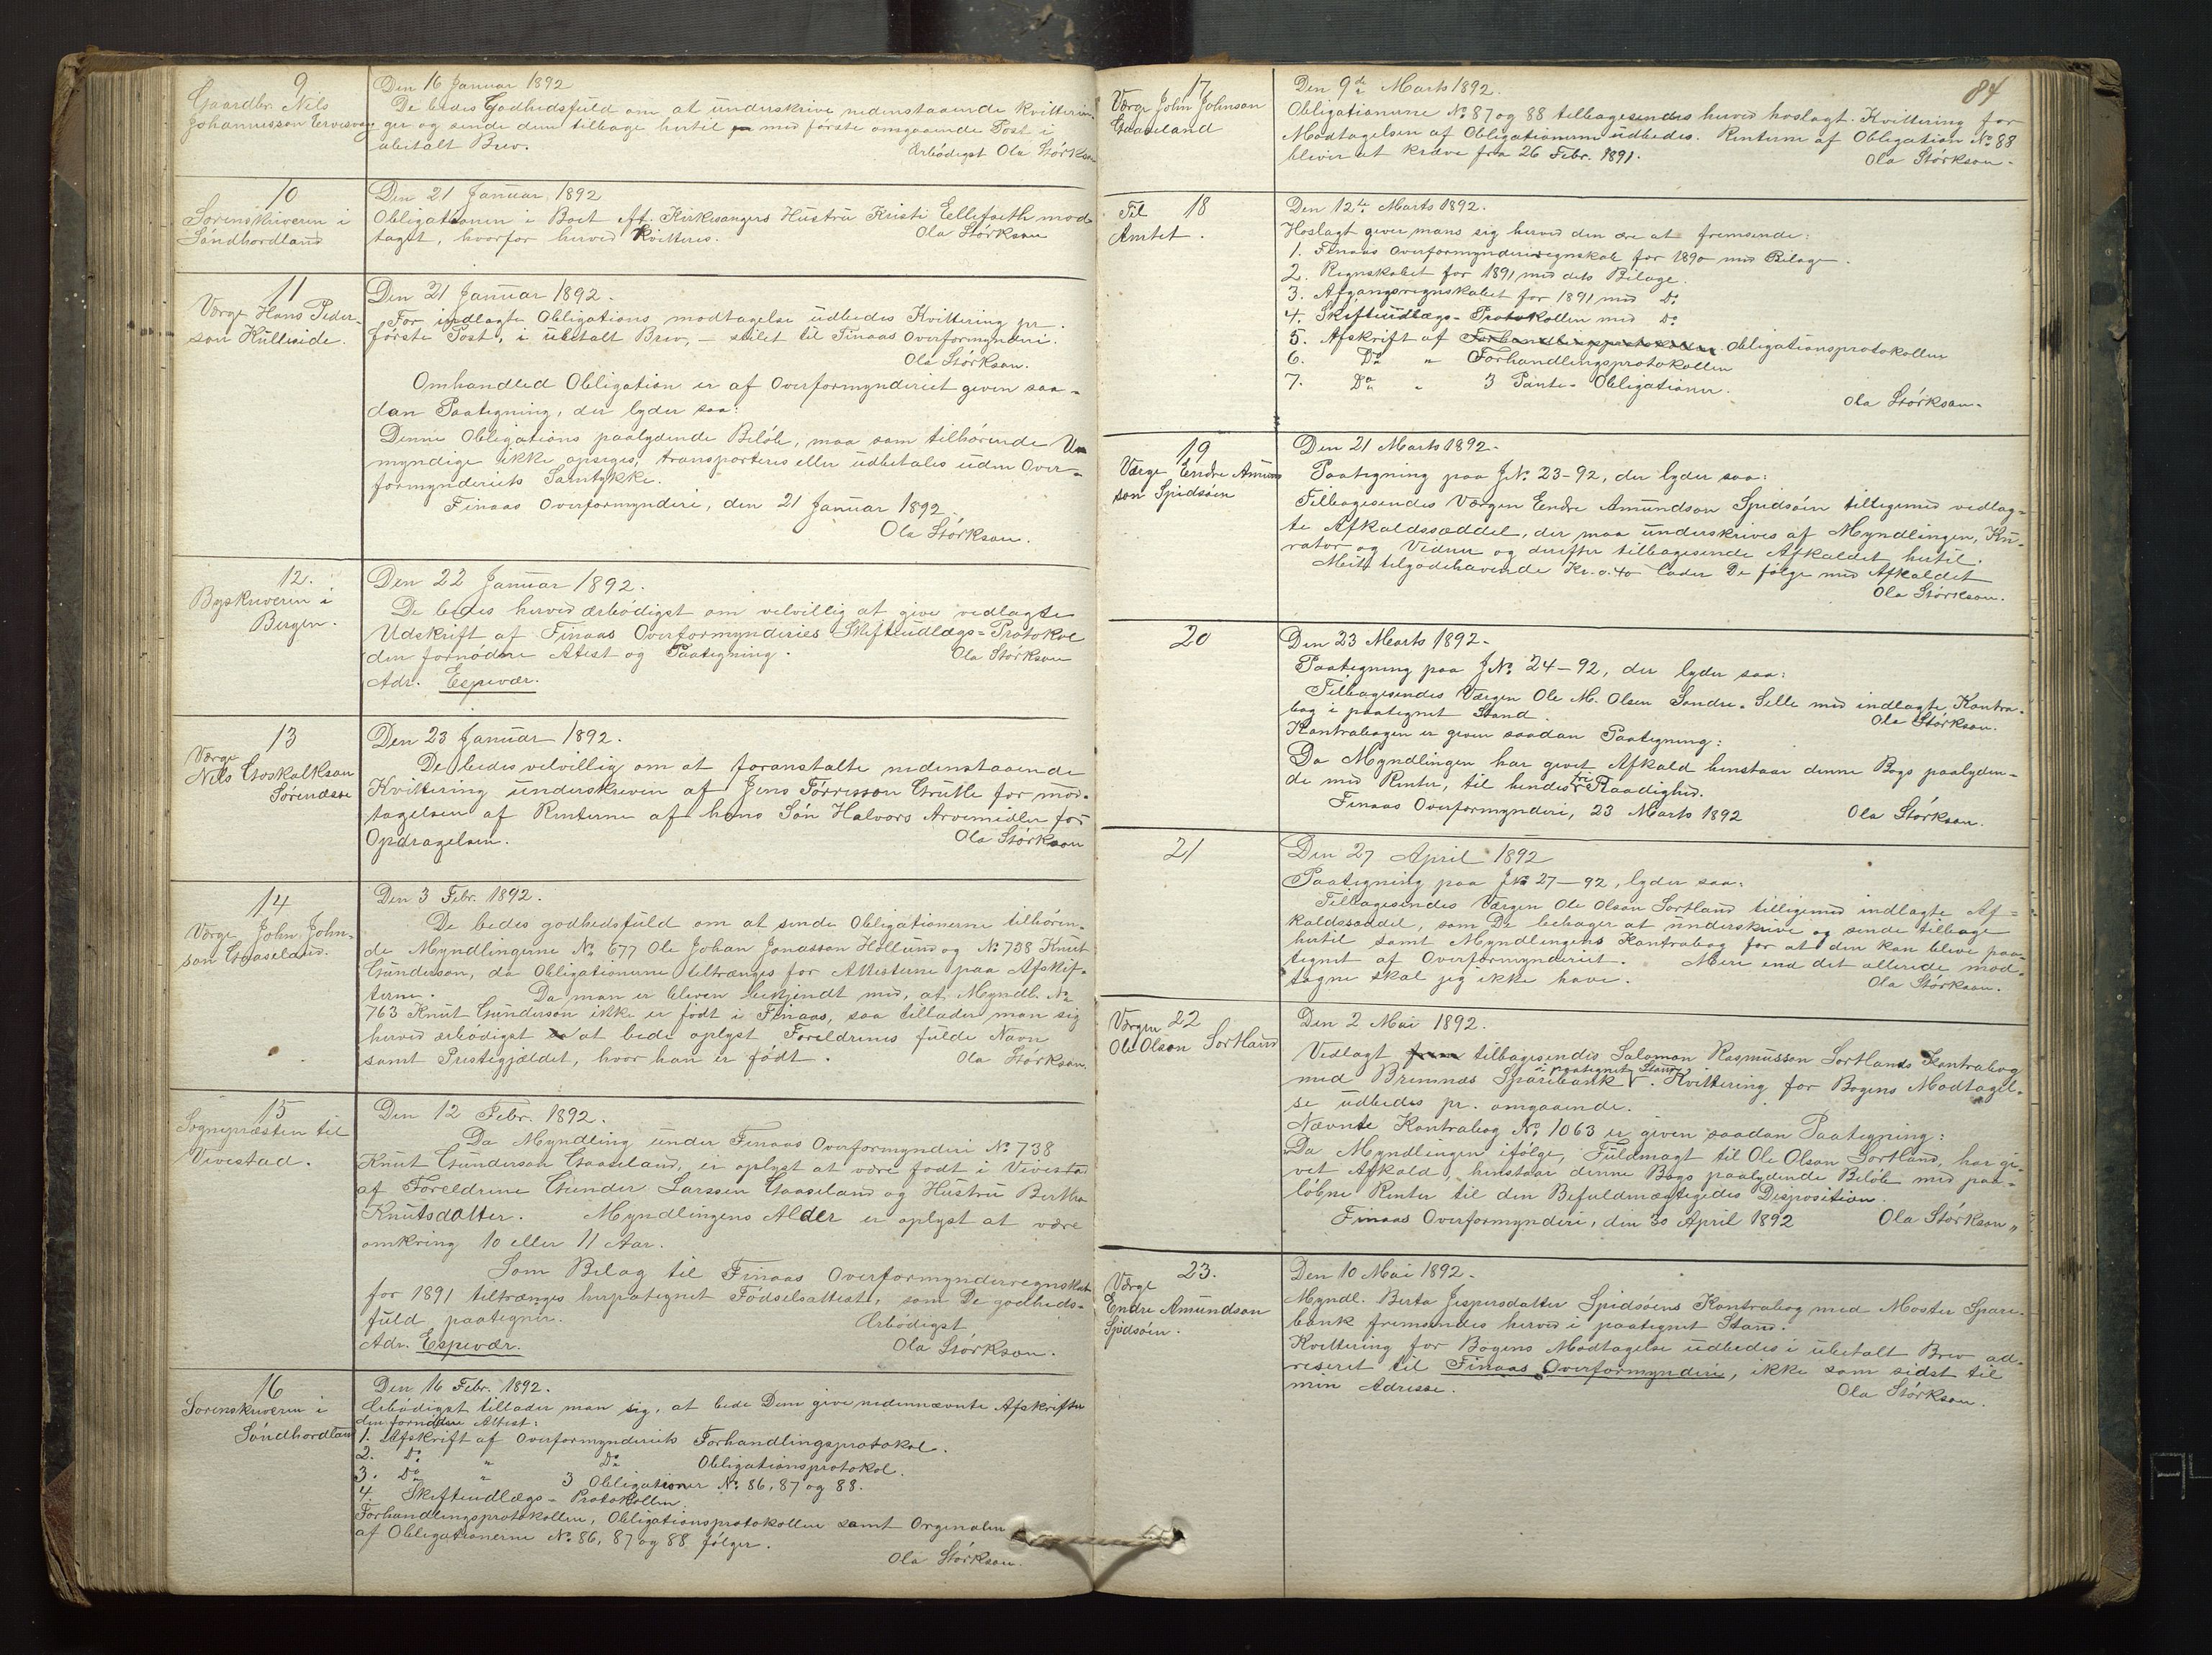 9
Gaardbr. Nils
Johannesson Tervesvaag
Den 16 Januar 1892
De bedes Godhedsfuld om at underskrive nedenstaaende Kvitterin-
ger og sende dem tilbage hertil med første omgaaende Post i
ubetalt Brev.
Ærbødigst Ola Størkson
10
Sorenskriveren i
Söndhordland
Den 21 Januar 1892
Obligationen i Boet Aff. Kirkesangers Hustru Kristi Ellefsæth mod-
taget, hvorfor herved Kvitteres.
Ola Størkson
11
Værge Hans Peder-
son Kulleside.
Den 21 Januar 1892.
For indlagte Obligations modtagelse udbedes Kvittering pr.
første Post, i ubetalt Brev, – stilet til Finaas Overformynderi.
Ola Størkson.
Omhandled Obligation er af Overformynderiet given saa-
dan Paategning, der lyder saa:
Denne Obligations paalydende Beløb, maa som tilhørende Un
myndige ikke opsiges, transporteres eller udbetales uden Over-
formynderiets Samtykke.
Finaas Overformynderi, den 21 Januar 1892.
Ola Størkson.
12.
Byskriveren i
Bergen.
Den 22 Januar 1892.
De bedes herved ærbødigst om velvillig at give vedlagte
Udskrift af Finaas Overformynderies Skifteudlægs-Protokol
den fornødne Atest og Paategning.
Ola Størkson
Adr. Espevær.
13
Værge
Nils Goskalkson
Sørenæsse
Den 23 Januar 1892.
De bedes velvillig om at foranstalte nedenstaaende
Kvittering underskreven af Jens Tørrisson Grutle for mod-
tagelsen af Renterne af hans Søn Halvors Arvemidler for
Opdragelsen.
Ola Størkson
14
Værge John John-
son Gaaseland.
Den 3 Febr. 1892.
De bedes godhedsfuld om at sende Obligationerne tilhøren-
de Myndlingerne No. 677 Ole Johan Jonasson Hollund og No. 738 Knut
Gunderson, da Obligationerne tiltrænges for Attesterne paa Afskif-
terne. Da man er bleven bekjendt med, at Myndl. No
763 Knut Gunderson ikke er født i Finaas, saa tillader man sig
herved ærbødigst at bede oplyst Foreldrenes fulde Navn
samt Prestegjældet, hvor han er født.
Ola Størkson.
15
Sognepræsten til
Vivestad.
Den 12 Febr. 1892.
Da Myndling under Finaas Overformynderi No. 738
Knut Gunderson Gaaseland, er oplyst at være født i Vivestad
af Foreldrene Gunder Larssen Gaaseland og Hustru Bertha
Knutsdatter. Myndlingens Alder er oplyst at være
omkring 10 eller 11 Aar.
Som Bilag til Finaas Overformynderregnskab
for 1891 tiltrænges herpategnet Fødselsattest, som De godheds-
fuld paategner.
Ærbødigst
Adr. Espevær.
Ola Størkson.
16
Sorenskriveren i
Søndhordland
Den 16 Febr. 1892.
Ærbødigst tillader man sig, at bede Dem give nedennævnte Afskrifter
den fornødne Attest:
1. Afskrift af Overformynderiets Forhandlingsprotokol.
2. Do " Do Obligationsprotokol.
3. Do " 3 Obligationer No. 86, 87 og 88.
4. Skifteudlægs-Protokollen.
Forhandlingsprotokollen, Obligationsprotokollen samt Orginalen
af Obligationerne No. 86, 87 og 88 følger.
Ola Størkson.
84
17
Værge John Johnson
Gaaseland
Den 9de Marts 1892.
Obligationerne No. 87 og 88 tilbagesendes herved hoslagt. Kvittering for
Modtagelsen af Obligationerne udbedes. Renterne af Obligation No. 88
bliver at kræve fra 26 Febr. 1891.
Ola Størkson.
18
Til
Amtet.
Den 12te Marts 1892.
Hoslagt giver mans sig herved den ære at fremsende:
1. Finaas Overformynderiregnskab for 1890 med Bilage.
2. Regnskabet for 1891 med dets Bilage.
3. Afgangsregnskabet for 1891 med Do
4. Skifteudlægs-Protokollen med Do
5. Afskrift af Forhandlingsprotokollen Obligationsprotokollen
6. Do " Forhandlingsprotokollen
7. Do " 3 Pante-Obligationer.
Ola Størkson.
19
Værge Endre Amund
son Spidsøen
Den 21 Marts 1892.
Paategning paa JNo. 23-92, der lyder saa:
Tilbagesendes Værgen Endre Amundson Spidsøen tilligemed vedlag-
te Afkaldssæddel, der maa underskrives af Myndlingen, Ku-
rator og Vidner og derefter tilbagesende Afkaldet hertil.
Mit tilgodehavende Kr. 0.40 lader De følge med Afkaldet
Ola Størkson.
20
Den 23 Marts 1892.
Paategning paa JNo. 24-92, der lyder saa:
Tilbagesendes Værgen Ole M. Olsen Søndre-Selle med indlagte Kontra-
bog i paategnet Stand.
Ola Størkson.
Kontrabogen er given saadan Paategning:
Da Myndlingen har givet Afkald henstaar denne Bogs paalyden-
de med Renter, til hendes fri Raadighed.
Finaas Overformynderi, 23 Marts 1892
Ola Størkson.
21
Den 27 April 1892
Paategning paa JNo 27-92, lyder saa:
Tilbagesendes Værgen Ole Olson Sortland tilligemed indlagte Af-
kaldssæddel, som De behager at underskrive og sende tilbage
hertil samt Myndlingens Kontrabog for at den kan blive paa-
tegnet af Overformynderiet. Mere end det allerede mod-
tagne skal jeg ikke have.
Ola Størkson.
22
Værgen
Ole Olson Sortland
Den 2 Mai 1892.
Vedlagt tilbagesendes Salomon Rasmusson Sortlands Kontrabog
med Bremnæs Sparebank i paategnet Stand. Kvittering for Bogens Modtagel-
se udbedes pr. omgaaende.
Nævnte Kontrabog No. 1063 er given saadan Paategning:
Da Myndlingen ifølge, Fuldmagt til Ole Olson Sortland, har gi-
vet Afkald, henstaar denne Bogs paalydende Beløb med paa-
løbne Renter til den Befuldmægtigedes Disposition.
Finaas Overformynderi, den 30 April 1892
Ola Størkson "
23.
Værge
Endre Amundson
Spidsøen.
Den 10 Mai 1892.
Myndl. Berta Jespersdatter Spidsøens Kontrabog med Moster Spare-
bank fremsendes herved i paategnet Stand.
Kvittering for Bogens Modtagelse udbedes i ubetalt Brev ad-
reseret til Finaas Overformynderi, ikke som sidst til
min Adresse.
Ola Størkson.